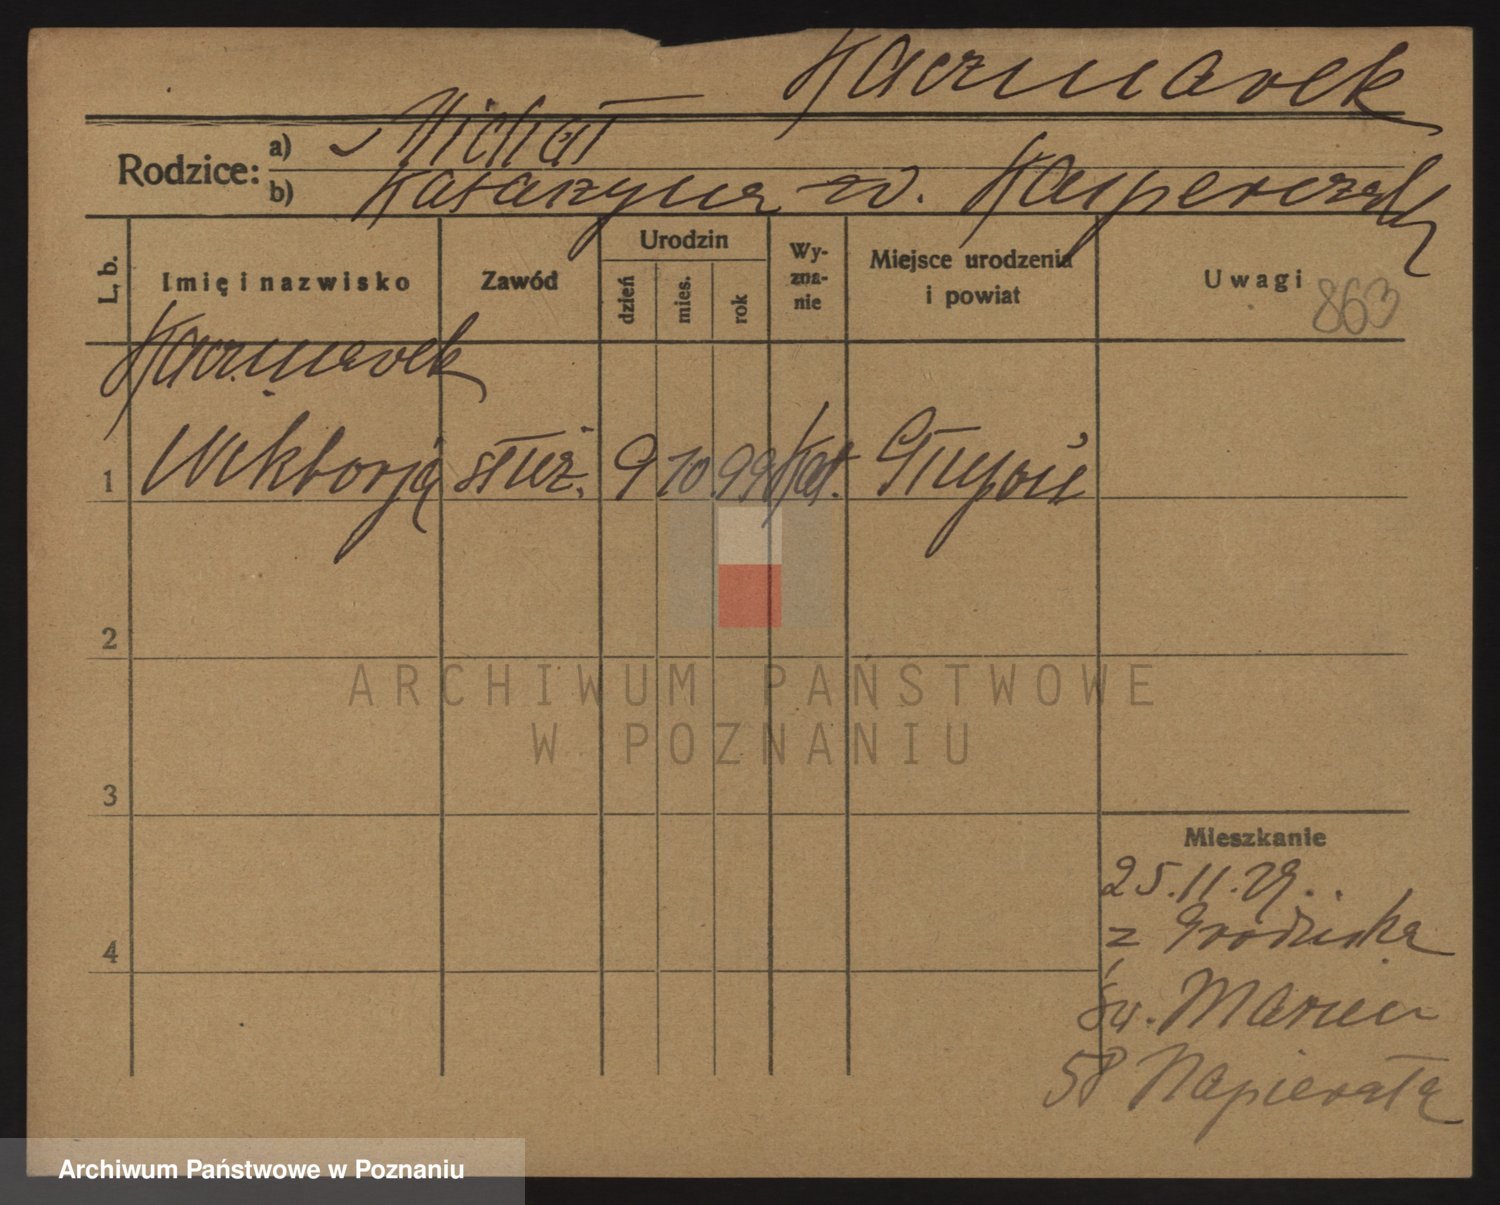 Kaczmarek
Rodzice: a) Michał
b) Katarzyna z d. Kasperczak
L. b. Imię i nazwisko Zawód Urodzin dzień mies. rok Wyznanie Miejsce urodzenia i powiat Uwagi 863
Kaczmarek
1 Wiktorja służ. 9 10 99 kat.
2
ARCHIWUM PAŃSTWOWE
W POZNANIU
3
Mieszkanie
25.11.29.
z Grodziska
4
św. Marcin
58 Napierała
Archiwum Państwowe w Poznaniu